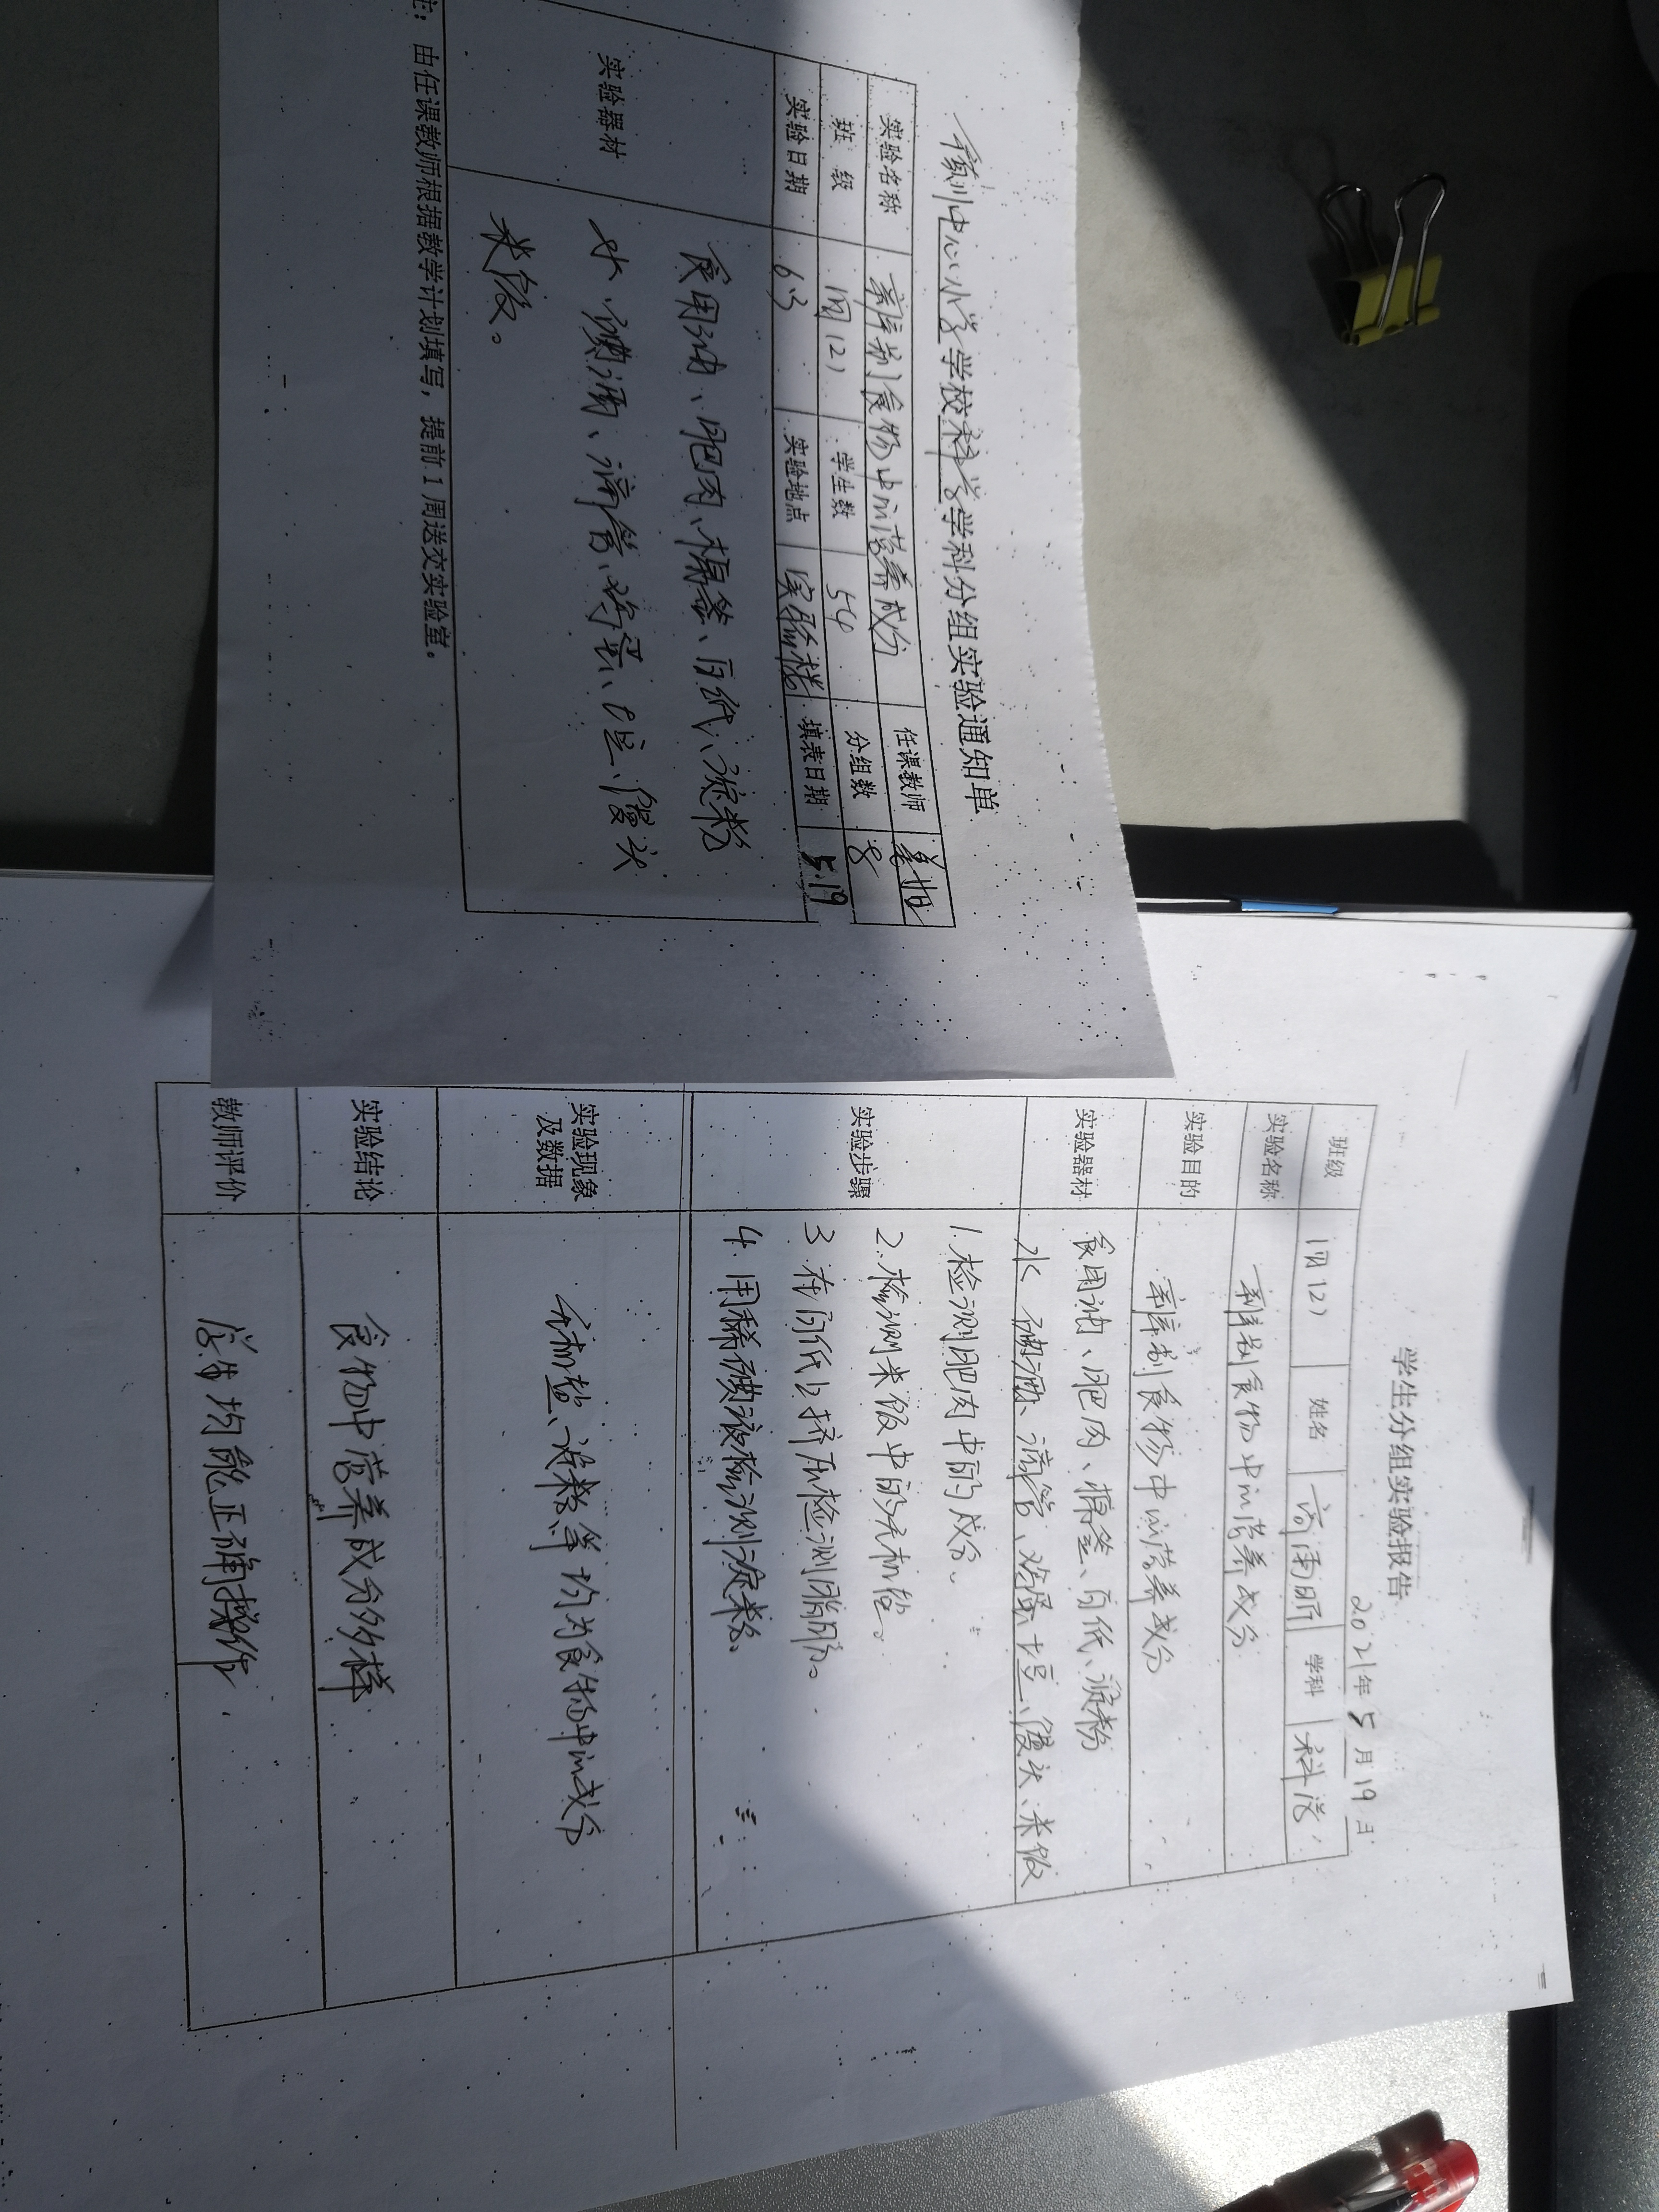 中心小学学校科学学科分组实验通知单
实验名称 辨别食物中的营养成分 任课教师
班级 四(2) 学生数 54 分组数 8
实验日期 6.3 实验地点 实验楼 填表日期 5.19
实验器材
食用油、肥肉、棉签、白纸、淀粉
水、碘酒、滴管、鸡蛋、土豆、馒头
米饭。
注：由任课教师根据教学计划填写，提前1周送交实验室。
学生分组实验报告
2021年5月19日
班级 四(2) 姓名 高雨昕 学科 科学
实验名称 辨别食物中的营养成分
实验目的 辨别食物中的营养成分
实验器材 食用油、肥肉、棉签、白纸、淀粉
水、碘酒、滴管、鸡蛋、土豆、馒头、米饭
实验步骤
1.检测肥肉中的成分。
2.检测米饭中的无机盐。
3.在白纸上挤压检测脂肪。
4.用稀碘液检测淀粉。
实验现象
及数据
无机盐、淀粉等均为食物中的成分
实验结论 食物中营养成分多样
教师评价 学生均能正确操作